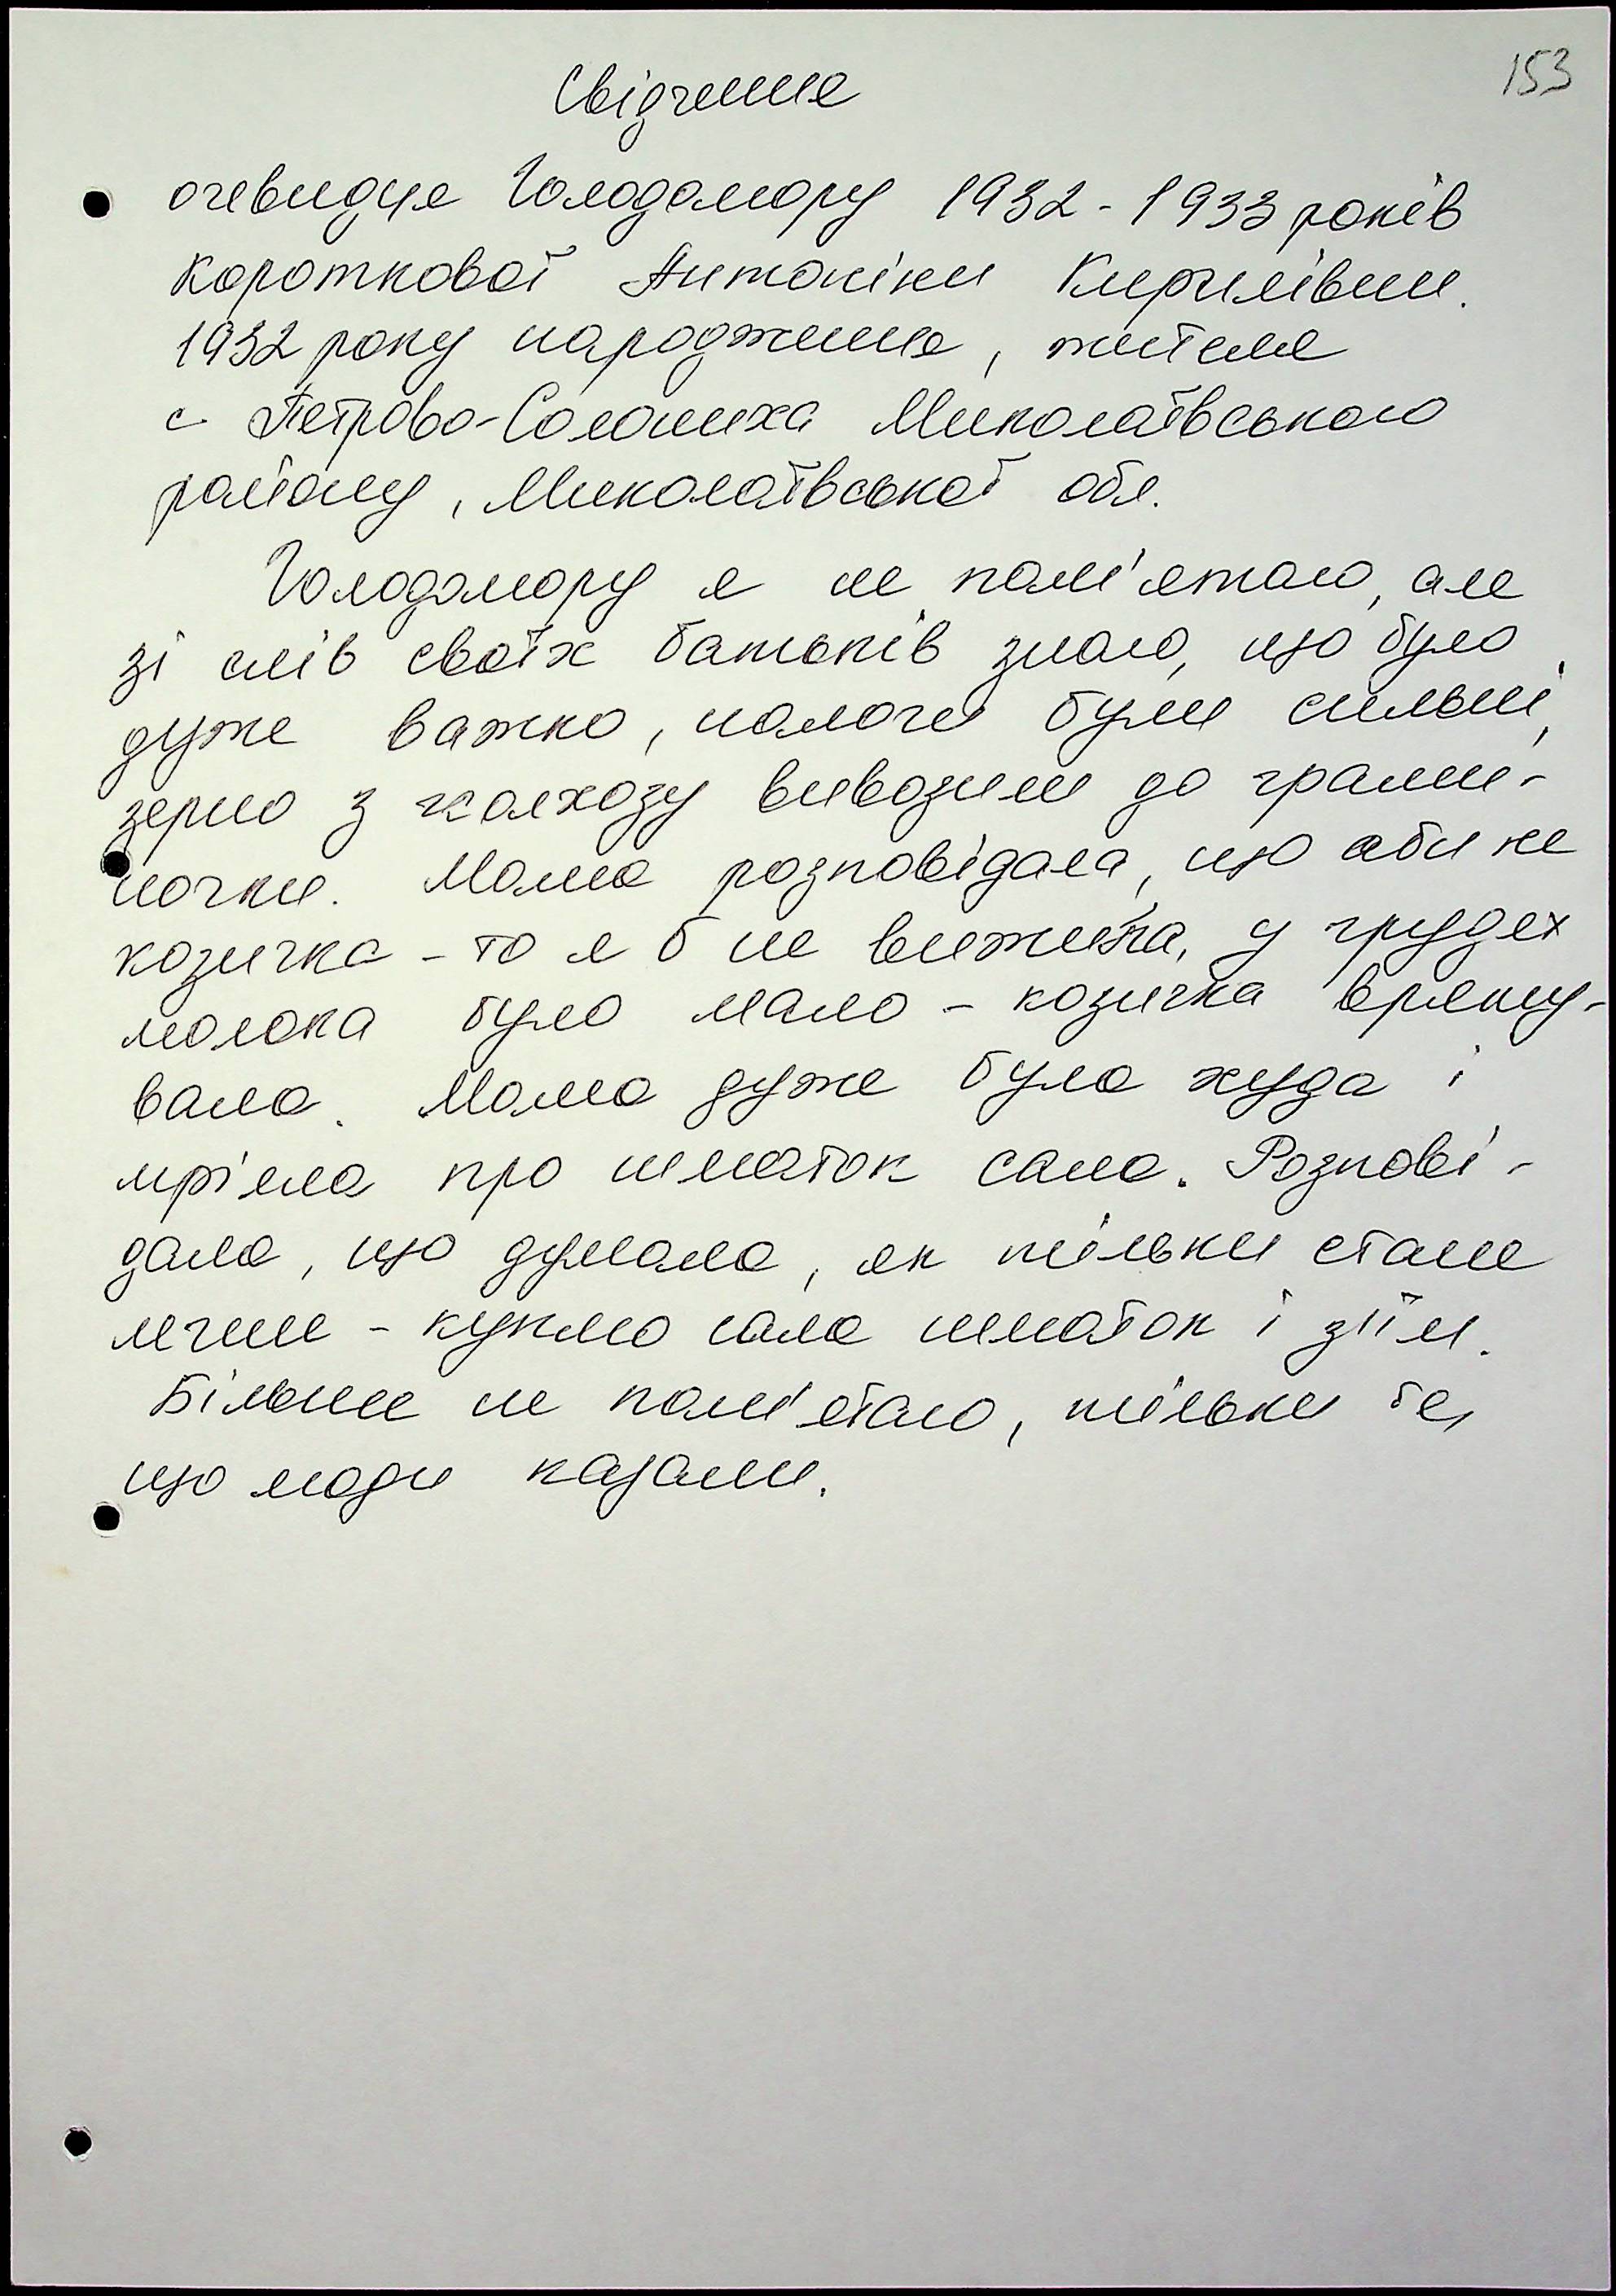 153
Свідчення
очевидця Голодомору 1932-1933 років
Короткової Антоніни Кирилівни.
1932 року народження, жителя
с. Петрово-Солониха Миколаївського
району, Миколаївської обл.
Голодомору я не пам'ятаю, але
зі слів своїх батьків знаю, що було
дуже важко, налоги були сильні,
зерно з колхозу вивозили до грами-
ночки. Мама розповідала, що аби не
козичка - то я б не вижила, у грудях
молока було мало - козичка вряту-
вала. Мама дуже була худа і
мріяла про шматок сала. Розпові-
дала, що думала, як тільки стане
легше - куплю сала шматок і зїім.
Більше не пам'ятаю, тільки те,
що люди казали.